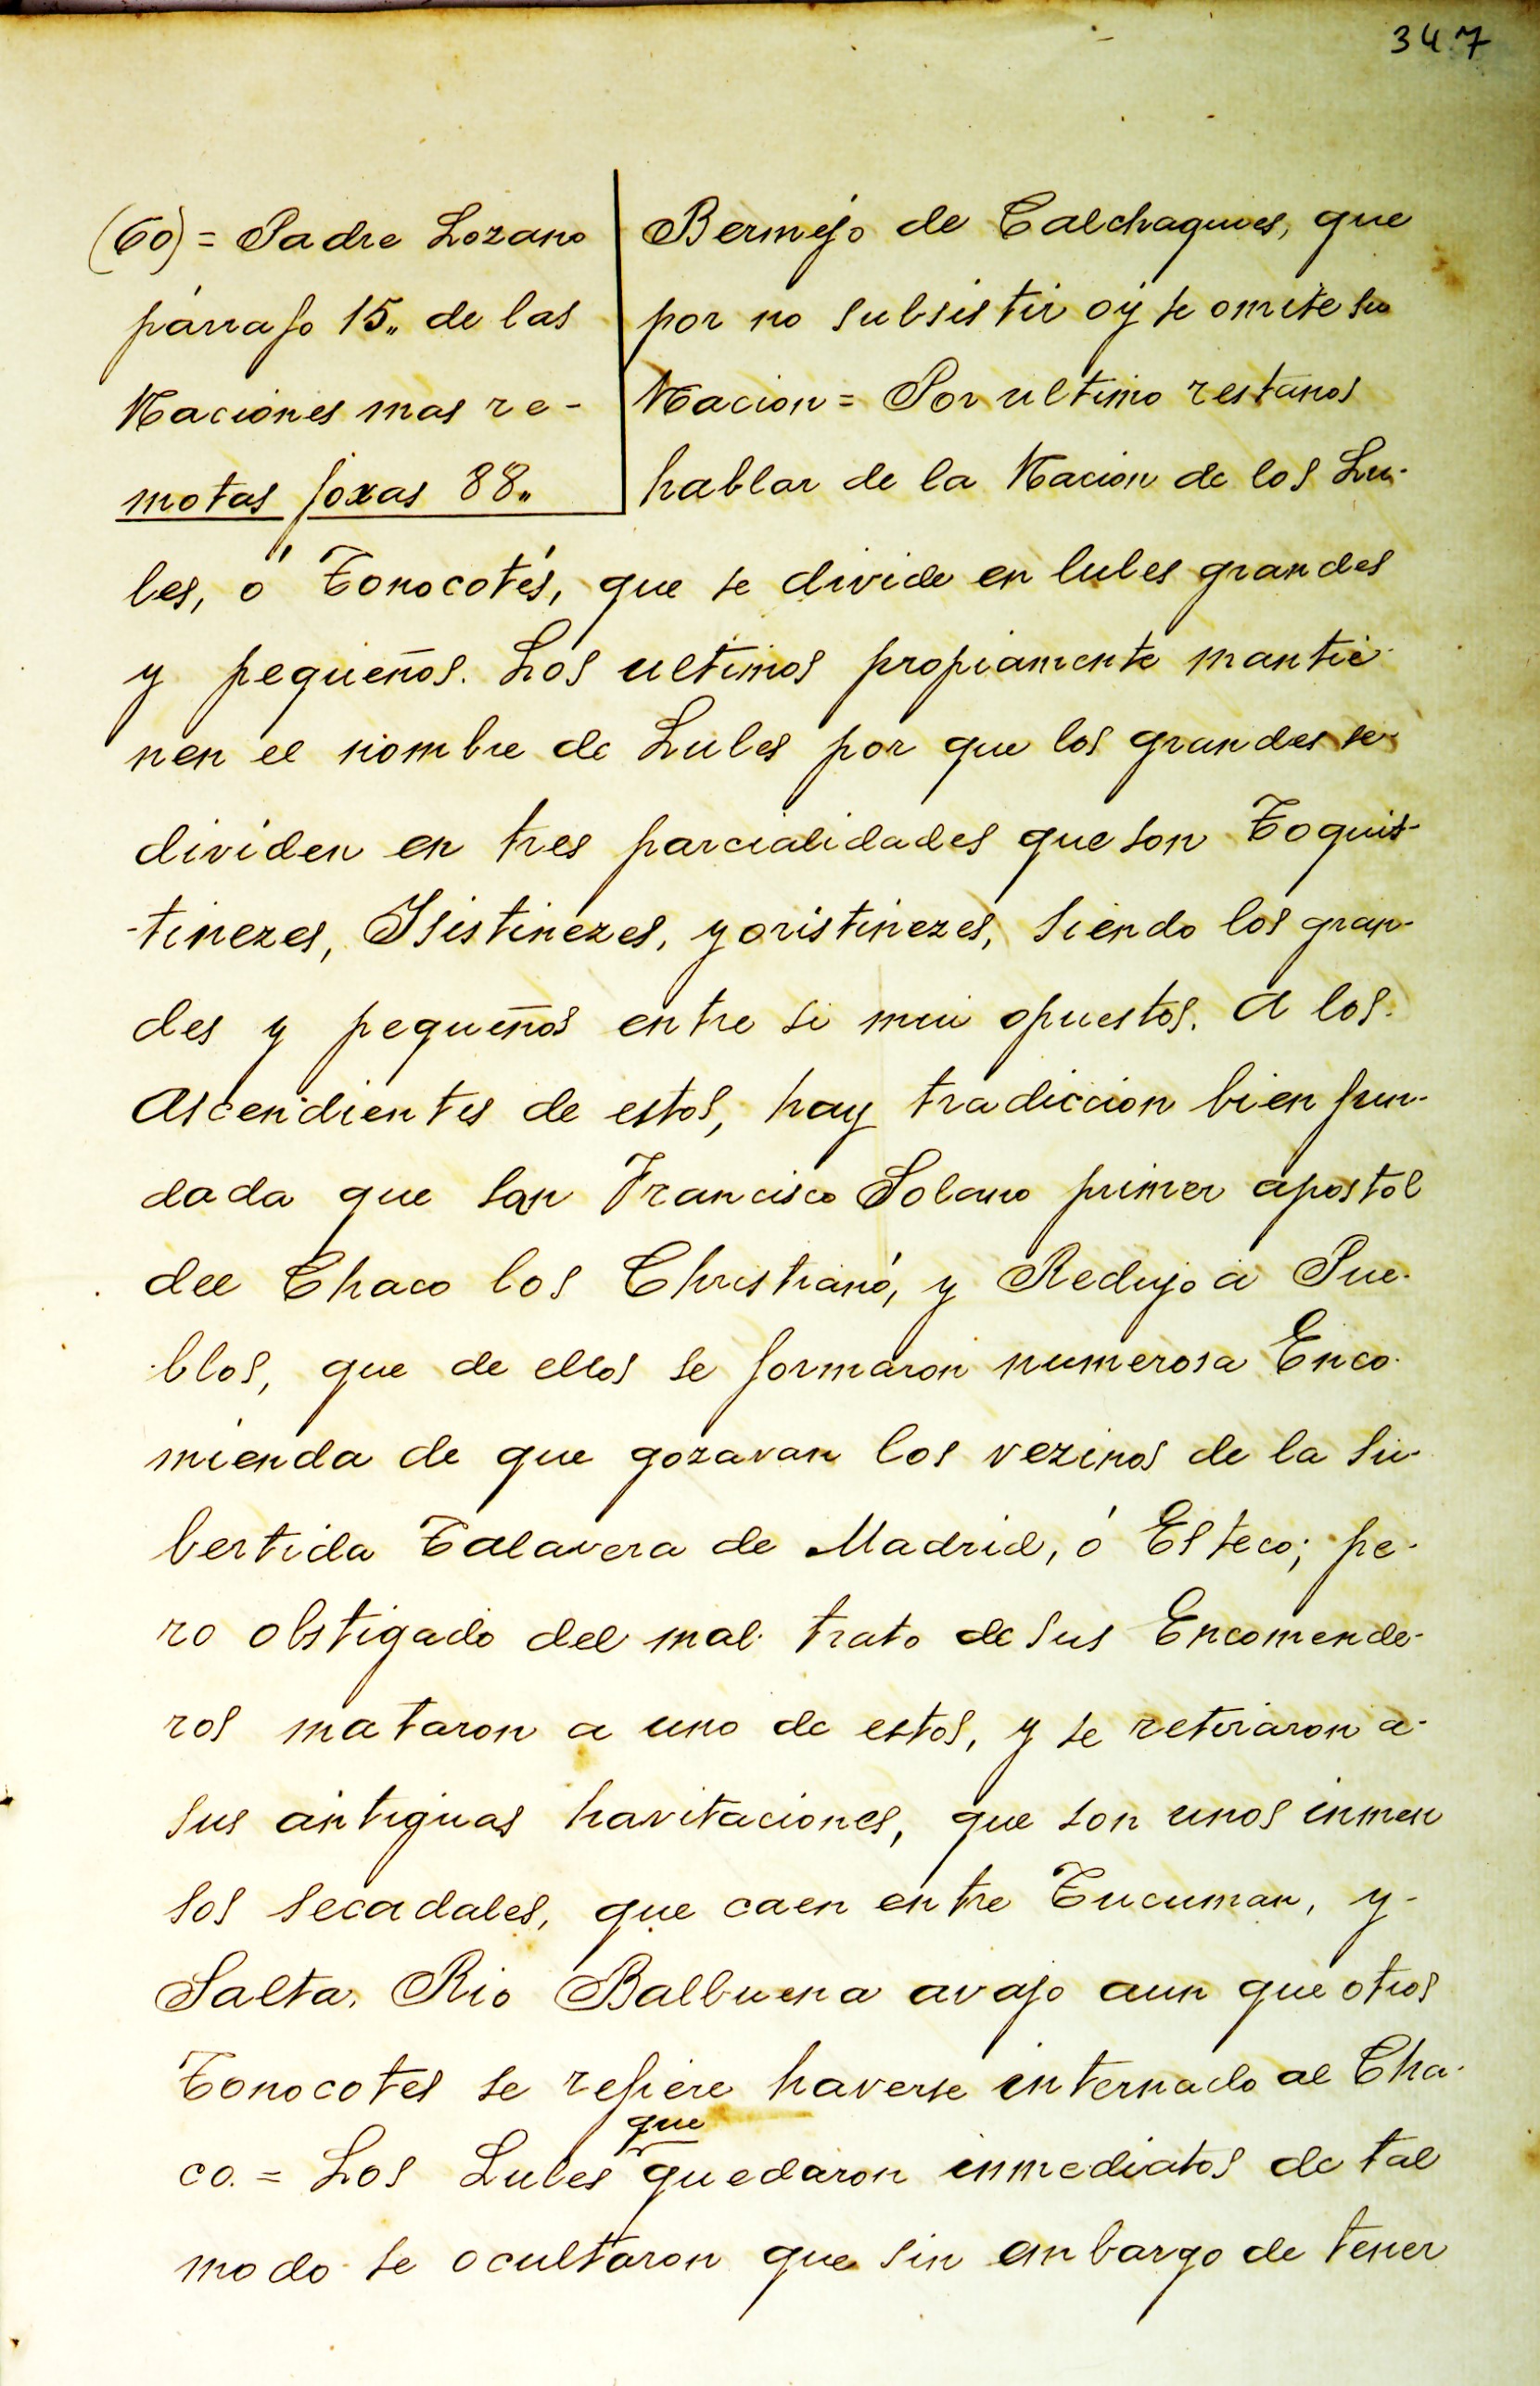 347
(60) = Padre Lozano
párrafo 15,, de las
Naciones mas re-
motas foxas 88,,
Bermejo de Calchaquies, que
por no subsistir oÿ se omite su
Nacion = Por ultimo restanos
hablar de la Nacion de los Lu-
les, ó Tonocotés, que se divide en lules grandes
y pequeños. Los ultimos propiamente mantie-
nen el nombre de Lules por que los grandes se-
dividen en tres parcialidades que son Toquis-
-tinezes, Ysistinezes, y oristinezes, siendo los gran-
des y pequeños entre si mui opuestos. A los
Ascendientes de estos, hay tradiccion bien fun-
dada que san Francisco Solano primer apostol
del Chaco los Christianó, y Redujo á Pue-
blos, que de ellos se formaron numerosa Enco-
mienda de que gozavan los vezinos de la su-
bertida Talavera de Madrid, ó Esteco; pe-
ro obstigado del mal trato de sus Encomende-
ros mataron a uno de estos, y se retiraron a-
sus antiguas havitaciones, que son unos inmen
sos secadales, que caen entre Tucuman, y-
Salta. Rio Balbuena avajo aun que otros
Tonocotes se refiere haverse internado al Cha-
co. = Los Lules que quedaron inmediatos de tal
modo se ocultaron que sin embargo de tener